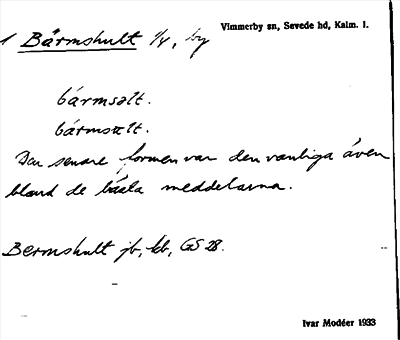 Vimmerby sn, Sevede hd, Kalm. l.
1 Bärmshult 1/4, by
bármsəlt.
bármsœlt.
Den senare formen var den vanliga även
bland de bästa meddelarna.
Bermshult jb, kb, GS 28.
Ivar Modéer 1933